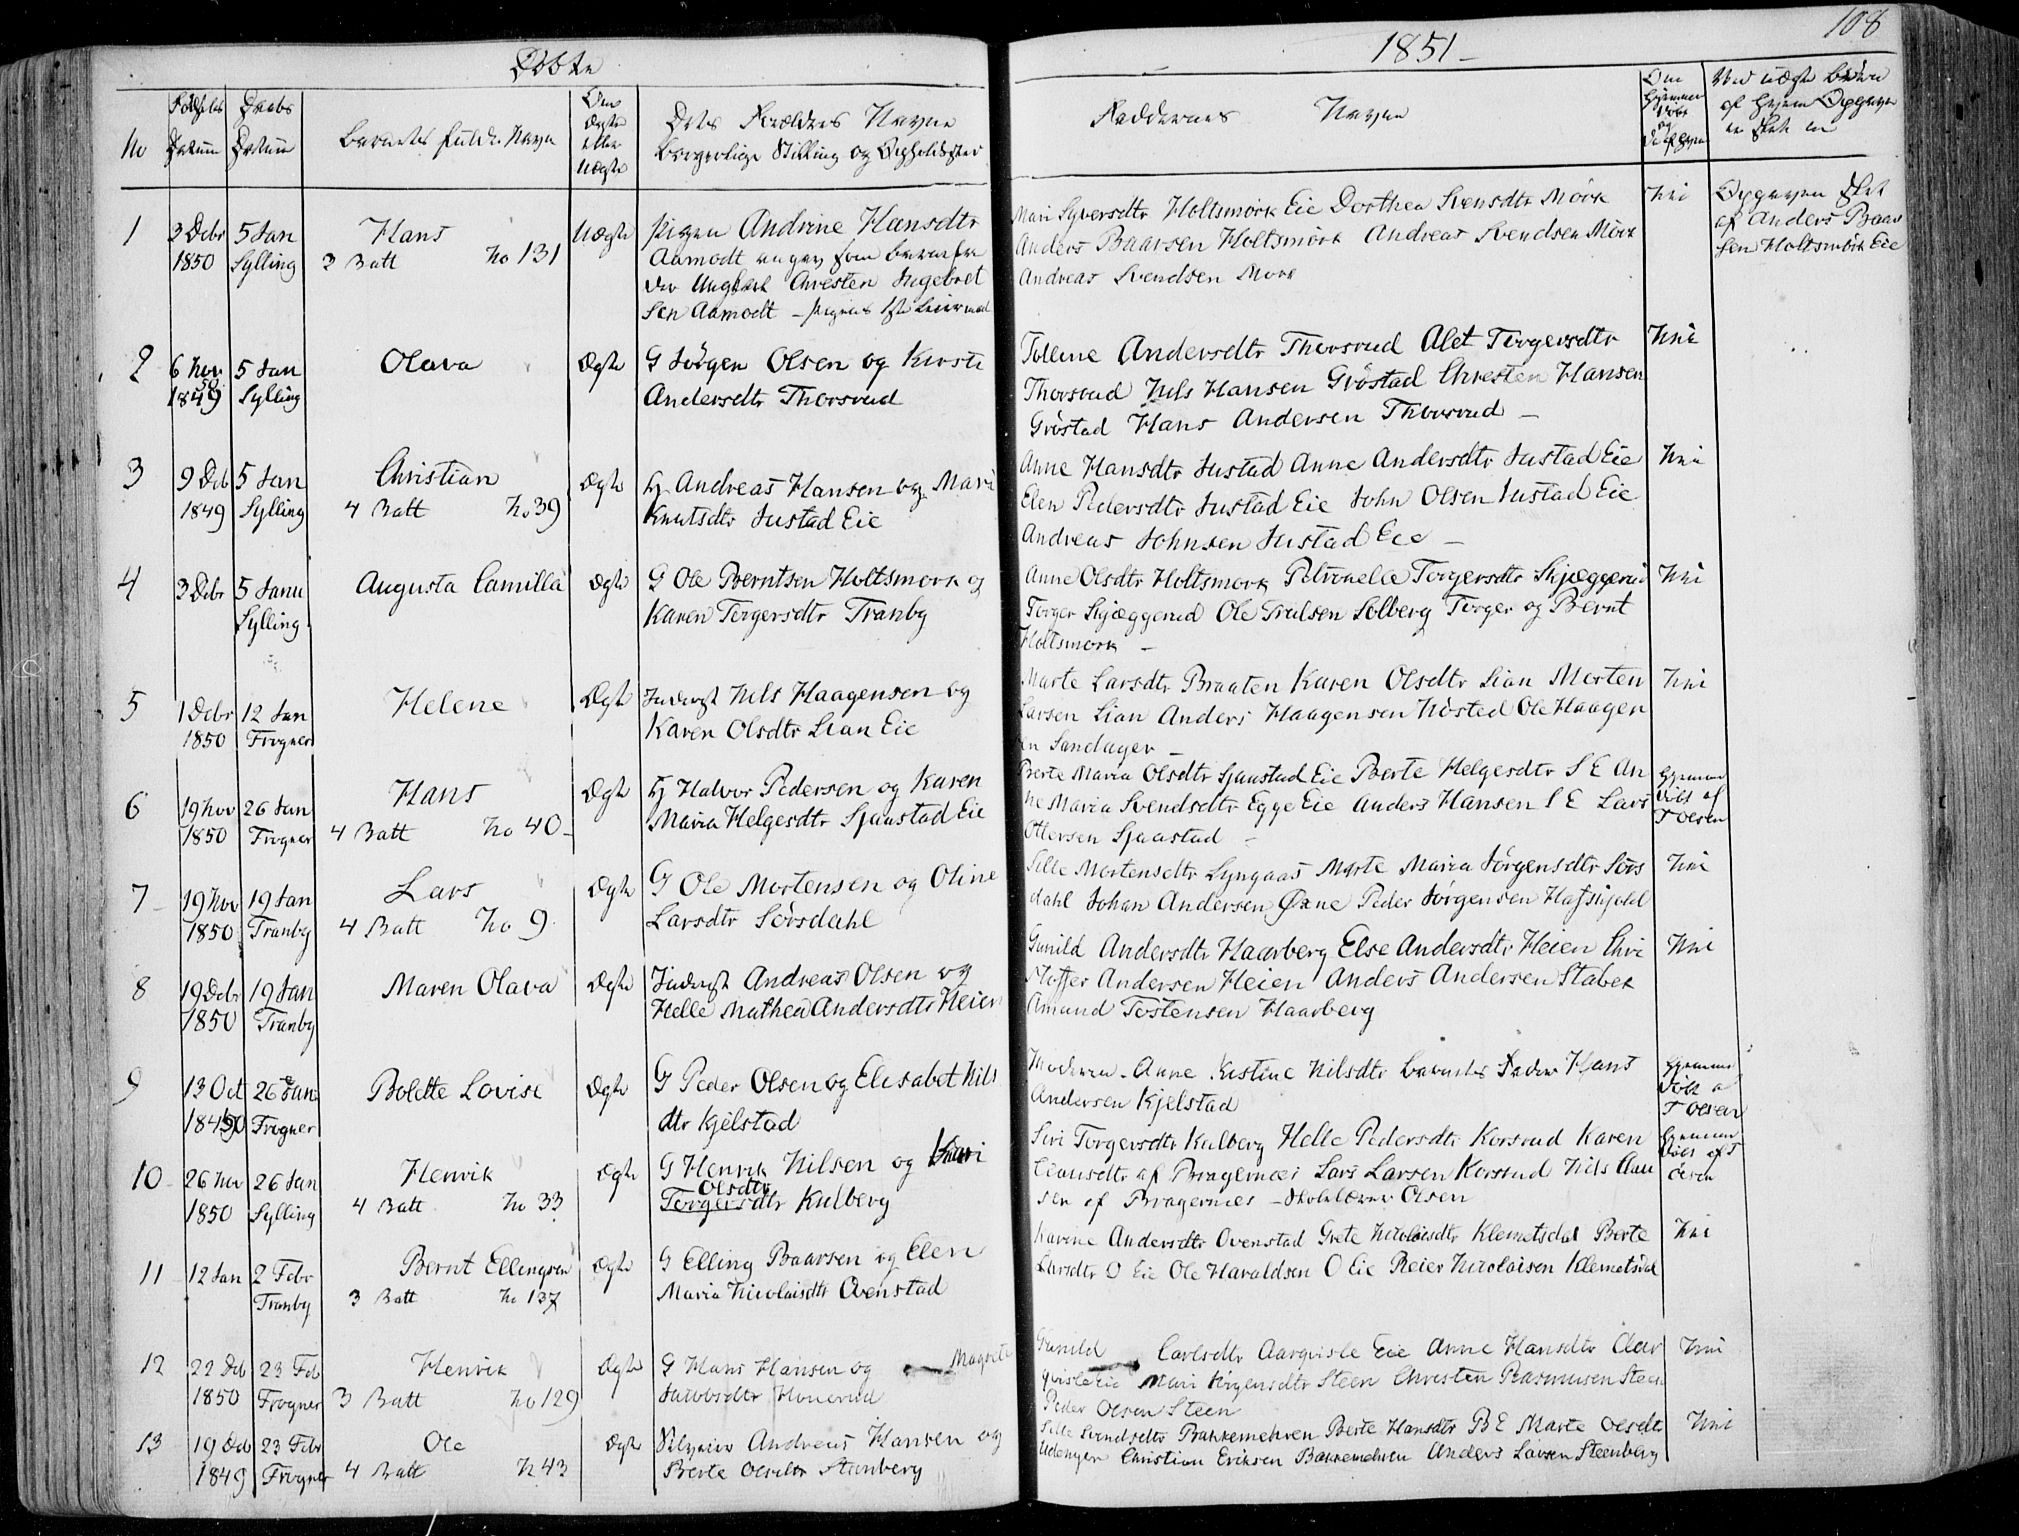 Døbte
1851
108
No
Fødsels Datum
Daabs Datum
Barnets fulde Navn
Om Ægte eller Uægte
Dets Forældres Navne Borgerlige Stilling og Opholdssted
Faddernes Navne
Om Hjemmedøbt og
Ved uægte Børn af hvem Opgaven er skeet
1
3 Debr 1850
5 Jan Sylling
Hans
3 Batt No 131
Uægte
Pigen Andrine Hansdtr
Aamodt
Ungkarl Christen Ingebret
sen Aamodt
Mari Syversdtr Holtsmork Eie Dorthea Svensdtr Mörk
Anders Baarsen Holtsmörk Andreas Svendsen Mörk
Andreas Svendsen Mork
Nei
Opgaven skeet
af Anders Baar
sen Holtsmörk Eie
2
6 Nov 1849 50
5 Jan Sylling
Olava
Ægte
G Jörgen Olsen og Kirsti
Andersdtr Thorsrud
Andersdtr Thorsrud Alet Torgersdtr
Thorsrud Nils Hansen Gröstad Christen Hansen
Gröstad Hans Andersen Thorsrud
Nei
3
9 Deb 1849
5 Jan Sylling
Christian
4 Batt No 39
Ægte
H Andreas Hansen og Mari
Knutsdtr Justad Eie
Anne Hansdtr Justad Anne Andersdtr Justad Eie
Elen Pedersdtr Justad Eie John Olsen Justad Eie
Andreas Johnsen Justad Eie
Nei
4
3 Debr
5 Janu Sylling
Augusta Camilla
Ægte
G Ole Berntsen Holtsmork og
Karen Torgersdtr Tranby
Anne Olsdtr Holtsmork Petronelle Torgersdtr Skjæggerud
Torger Skjæggerud Ole Trulsen Solberg Torger og Bernt
Holtsmork
Nei
5
1 Debr 1850
12 Jan Frogner
Helene
Ægte
Inderst Nils Haagensen og
Karen Olsdtr Lian Eie
Marte Larsdtr Braaten Karen Olsdtr Lian Morten
Larsen Lian Anders Haagensen Nösted Ole Haagen
sen Sandager
Nei
6
19 Nov 1850
26 Jan Frogner
Hans
4 Batt No 40
Ægte
H Halvor Pedersen og Karen
Maria Helgesdtr Sjaastad Eie
Berte Maria Olsdtr Sjaastad Eie Berte Helgesdtr S E An
ne Maria Svendsdtr Egge Eie Anders Hansen S E Lars
Ottersen Sjaastad
Hjemme
döbt af
T Olsen
7
19 Nov 1850
19 Jan Tranby
Lars
4 Batt No 9
Ægte
G Ole Mortensen og Oline
Larsdtr Sörsdahl
Sille Mortensdtr Lyngaas Marte Maria Jörgensdtr Sörs
dahl Johan Andersen Peder Jörgensen Hafskjold
Nei
8
19 Debr 1850
19 Jan Tranby
Maren Olava
Ægte
Inderst Andreas Olsen og
Helle Mathea Andersdtr Heien
Gunild Andersdtr Haarberg Else Andersdtr Heien Chri
stoffer Andersen Heien Anders Andersen Stabek
Amund Tostensen Haarberg
Nei
9
13 Oct 1850
26 Jan Frogner
Bolette Lovise
Ægte
G Peder Olsen og Elisabet Nils
dtr Kjelstad
Moderen Anne Kistine Nilsdtr Barnets Fader Hans
Andersen Kjelstad
Hjemme
döbt a
T Olsen
10
26 Nov 1850
26 Jan Sylling
Henrik
4 Batt No 33
Ægte
G Henrik Nilsen og Kari
Olsdtr
Torgersdtr Kulberg
Siri Torgersdtr Kulberg Helle Pedersdtr Korsrud Karen
Clausdtr af Bragernæs Lars Larsen Korsrud Nils Clau
sen af Bragernæs Skolelærer Olsen
Hjemme
döbt af
Olsen
11
12 Jan
2 Febr Tranby
Bernt Ellingsen
3 Batt No 137
Ægte
G Elling Baarsen og Elen
Maria Nicolaisdtr Ovenstad
Karine Andersdtr Ovenstad Grete Nicolaisdtr Klemetsdal Berte
Larsdtr O Eie Ole Haraldsen O Eie Reier Nicolaisen Klemetsdal
Nei
12
22 Deb 1850
23 Feb Frogner
Henrik
3 Batt No 129
Ægte
G Hans Hansen og Magrete
Jacobsdtr Honerud
Gunild Carlsdtr Aarqvisle Eie Anne Hansdtr Aar
qvisle Eie Mari Jörgensdtr Steen Christen Rasmusen Steen
Peder Olsen Steen
Nei
13
19 Deb 1849
23 Febr Frogner
Ole
4 Batt N 43
Ægte
Andreas Hansen og
Berte Olsdtr Stenberg
Sille Svendsdtr Bakkemehren Berte Hansdtr B E Marte Olsdtr
Christian Eriksen Bakkemehren Anders Larsen Steenberg
Nei